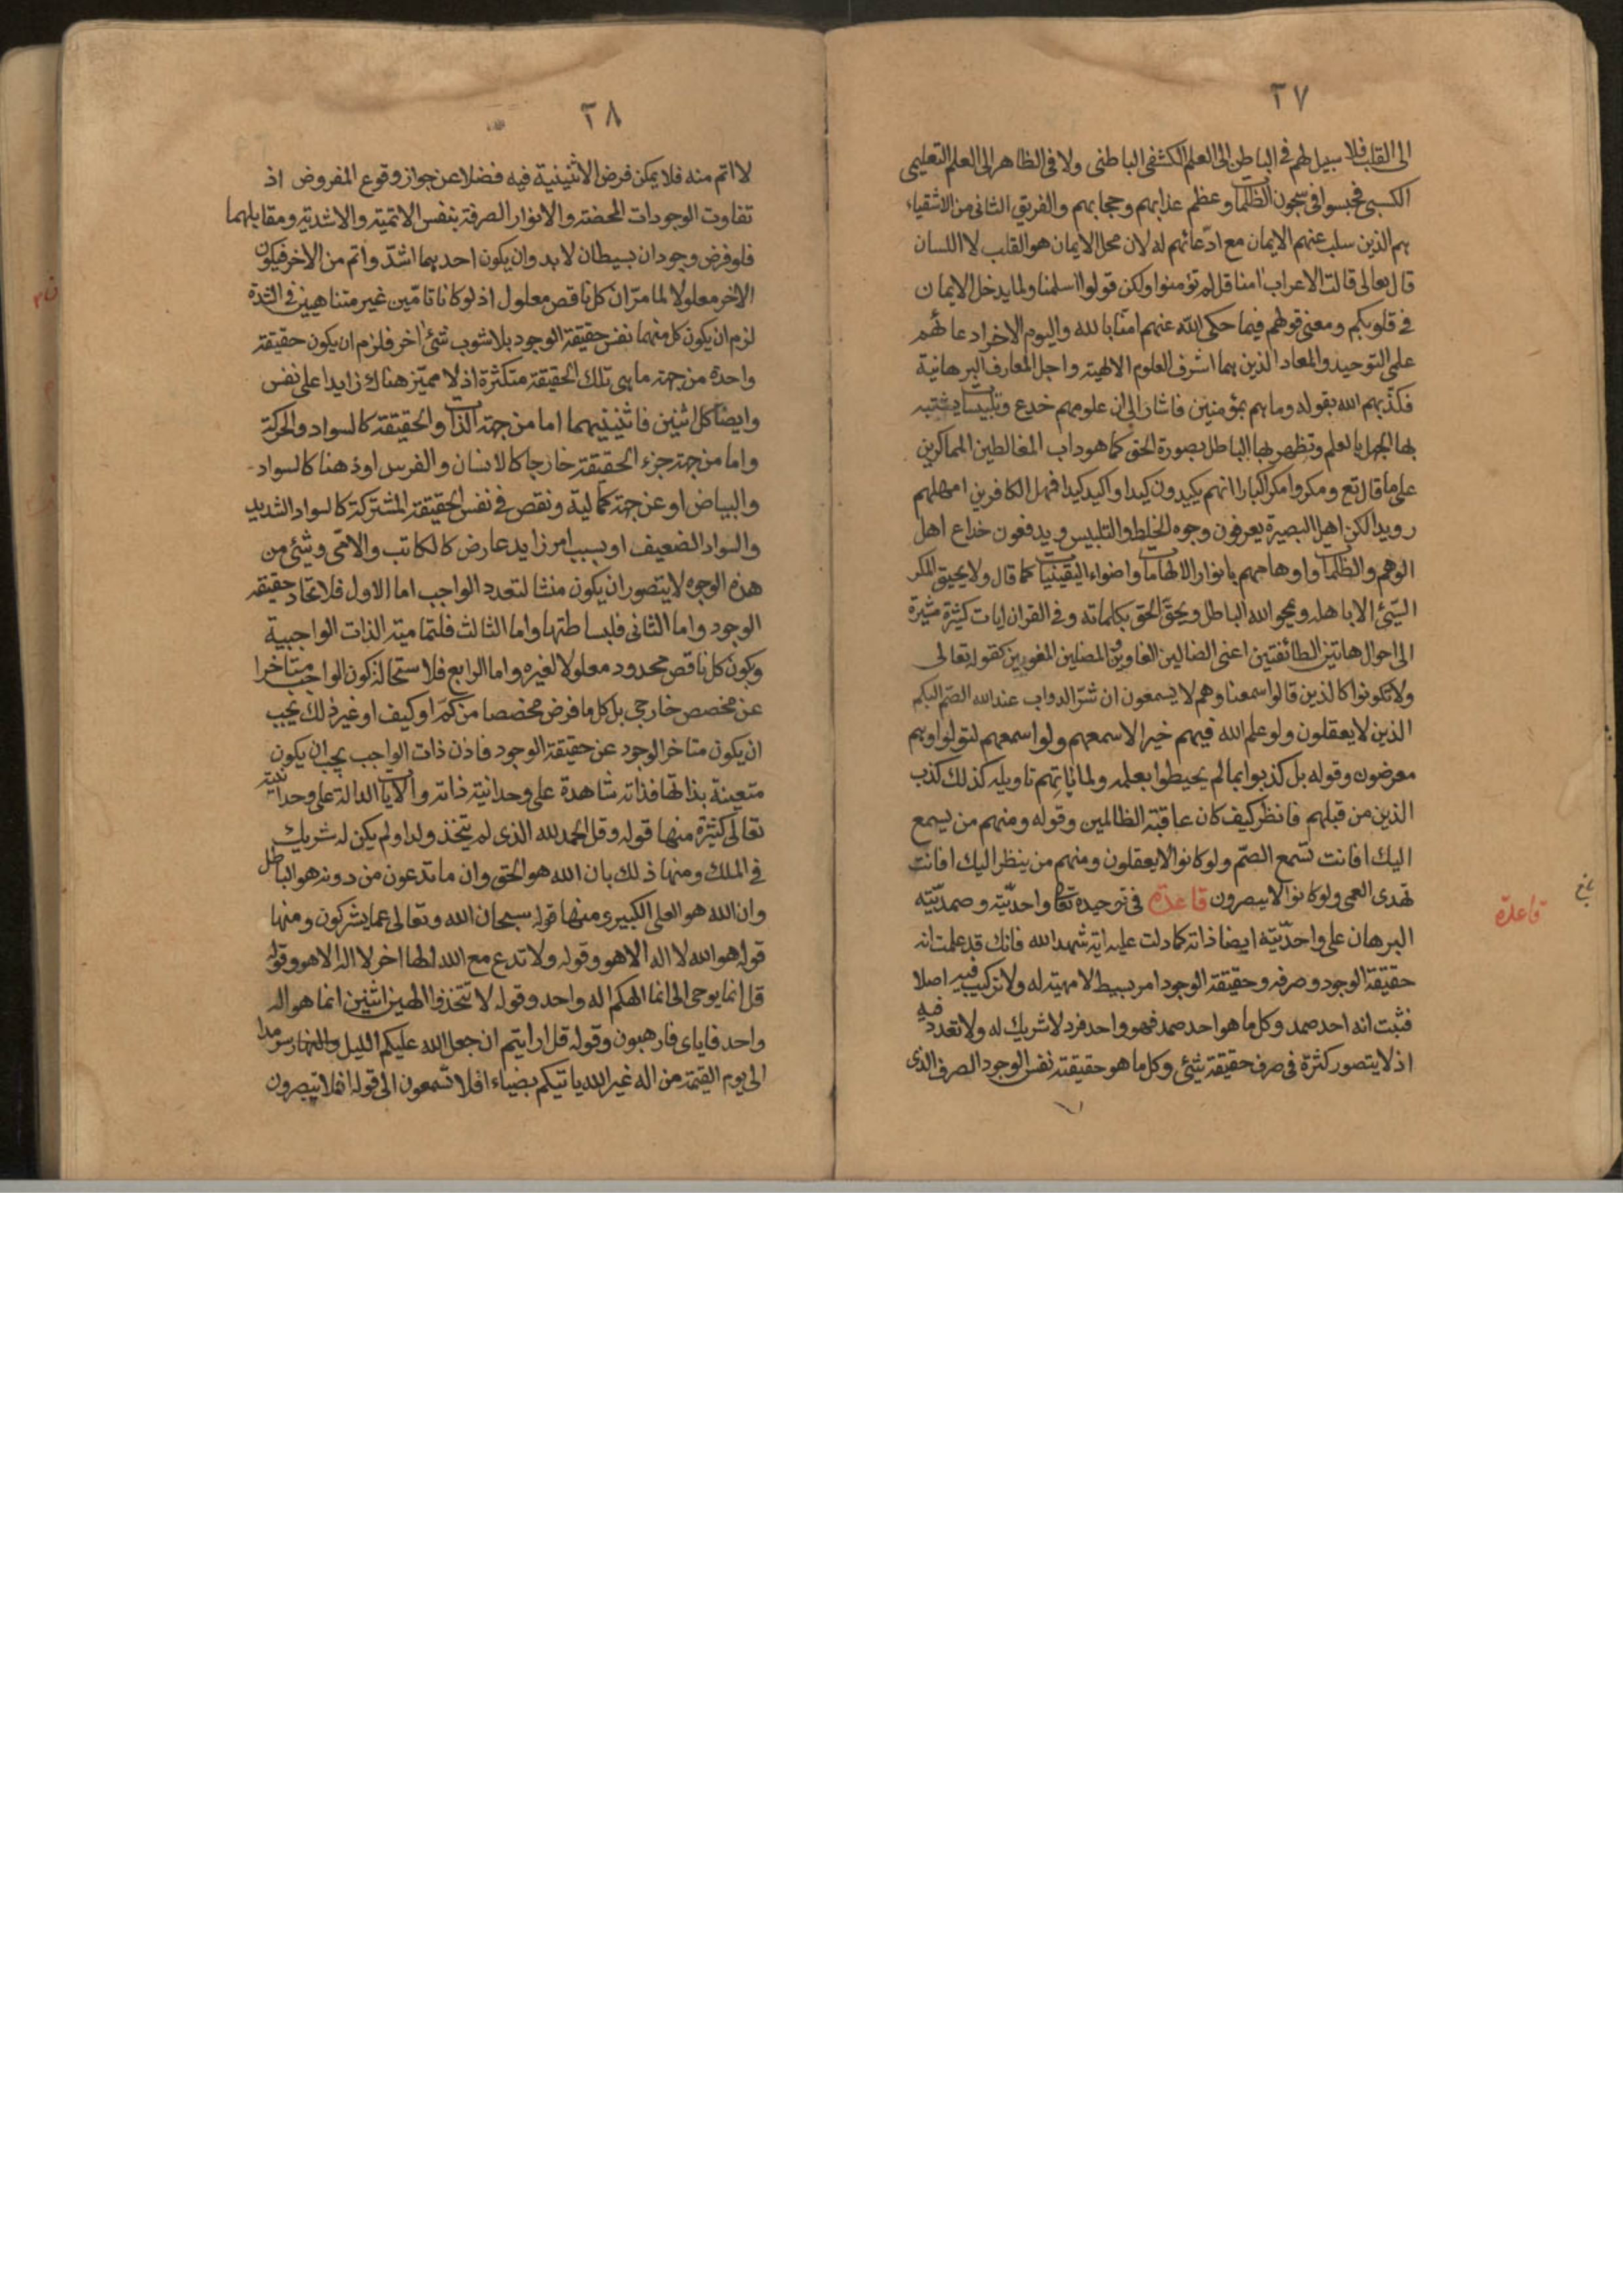 ٢٧
الى القلب فلا سبيل لهم فى الباطن الى العلم الكشفى الباطنى ولا فى الظاهر الى العلم التعليمى
الكسبى فحبسوا فى سجون الظلمات وعظم عذابهم وحجابهم والفريق الثانى من الاشقياء
هم الذين سلب عنهم الايمان مع ادعائهم له لان محل الايمان هو القلب لا اللسان
قال تعالى قالت الاعراب امنا قل لم تؤمنوا ولكن قولوا اسلمنا ولما يدخل الايمان
فى قلوبكم ومعنى قولهم فيما حكى الله عنهم امنا بالله واليوم الاخر ادعائهم
علمى التوحيد والمعاد الذين هما اشرف العلوم الالهية واجل المعارف البرهانية
فكذبهم الله بقوله وما هم بمؤمنين فاشار الى ان علومهم خدع وتلبيسات يشتبه
بها الجهل بالعلم وتظهر بها الباطل بصورة الحق كما هو داب المغالطين المماكرين
على ما قال تع ومكروا مكرا كبارا انهم يكيدون كيدا واكيد كيدا فمهل الكافرين امهلهم
رويدا لكن اهل البصيرة يعرفون وجوه الخلط والتلبيس ويدفعون خداع اهل
الوهم والظلمات واوهاجهم بانوار الالهامات واضواء اليقينيات كما قال ولا يحيق المكر
السيئ الا باهله ويمحو الله الباطل ويحق الحق بكلماته وفى القران ايات كثيرة مشيرة
الى احوال هاتين الطائفتين اعنى الضالين الغاوين والمضلين المغوين كقوله تعالى
ولا تكونوا كالذين قالوا سمعنا وهم لا يسمعون ان شر الدواب عند الله الصم البكم
الذين لا يعقلون ولو علم الله فيهم خيرا لاسمعهم ولو اسمعهم لتولوا وهم
معرضون وقوله بل كذبوا بما لم يحيطوا بعلمه ولما ياتهم تاويله كذلك كذب
الذين من قبلهم فانظر كيف كان عاقبة الظالمين وقوله ومنهم من يسمع
اليك افانت تسمع الصم ولو كانوا لا يعقلون ومنهم من ينظر اليك افانت
تهدى العمى ولو كانوا لا يبصرون قاعدة فى توحيده تعا واحديته وصمديته
قاعدة
البرهان على واحديته ايضا ذاته كما دلت عليه اية شهد الله فانك قد علمت انه
حقيقة الوجود وصرفه وحقيقة الوجود امر بسيط لا مهية له ولا تركيب فيه اصلا
فثبت انه احد صمد وكل ما هو احد صمد فهو واحد فرد لا شريك له ولا تعدد فيه
اذ لا يتصور كثرة فى صرف حقيقة شيئ وكل ما هو حقيقته نفس الوجود الصرف الذى
٢٨
لا اتم منه فلا يمكن فرض الاثنينية فيه فضلا عن جواز وقوع المفروض اذ
تفاوت الوجودات المحضة والانوار الصرفة بنفس الاتمية والاشدية ومقابلهما
فلو فرض وجودان بسيطان لا بد وان يكون احدهما اشد واتم من الاخر فيكون
الاخر معلولا لما مر ان كل ناقص معلول اذ لو كانا تامين غير متناهيين فى الشدة
لزم ان يكون كل منهما نفس حقيقة الوجود بلا شوب شئ اخر فلزم ان يكون حقيقة
واحدة من جهة ما هى تلك الحقيقة متكثرة اذ لا مميز هناك زايدا على نفس
وايضا كل اثنين فاثنينيتهما اما من جهة الذات والحقيقة كالسواد والحركة
واما من جهة جزء الحقيقة خارجا كالانسان والفرس او ذهنا كالسواد
والبياض او عن جهة كمالية ونقص فى نفس الحقيقة المشتركة كالسواد الشديد
والسواد الضعيف او بسبب امر زايد عارض كالكاتب والامى وشئ من
هذه الوجوه لا يتصور ان يكون منشا لتعدد الواجب اما الاول فلاتحاد حقيقة
الوجود واما الثانى فلبساطتها واما الثالث فلتمامية الذات الواجبية
وكون كل ناقص محدود معلولا لغيره واما الرابع فلاستحالة كون الواجب متاخرا
عن مخصص خارجى بل كل ما فرض مخصصا من كم او كيف او غير ذلك يجب
ان يكون متاخر الوجود عن حقيقة الوجود فاذن ذات الواجب يجب ان يكون
متعينة بذاتها فذاته شاهدة على وحدانية ذاته والايات الدالة على وحدانيته
تعالى كثيرة منها قوله وقل الحمد لله الذى لم يتخذ ولدا ولم يكن له شريك
فى الملك ومنها ذلك بان الله هو الحق وان ما تدعون من دونه هو الباطل
وان الله هو العلى الكبير ومنها قوله سبحان الله وتعالى عما يشركون ومنها
قوله هو الله لا اله الا هو وقوله ولا تدع مع الله الها اخر لا اله الا هو وقوله
قل انما يوحى الى انما الهكم اله واحد وقوله لا تتخذوا الهين اثنين انما هو اله
واحد فاياى فارهبون وقوله قل ارايتم ان جعل الله عليكم الليل والنهار سرمدا
الى يوم القيمة من اله غير الله ياتيكم بضياء افلا تسمعون الى قوله افلا تبصرون